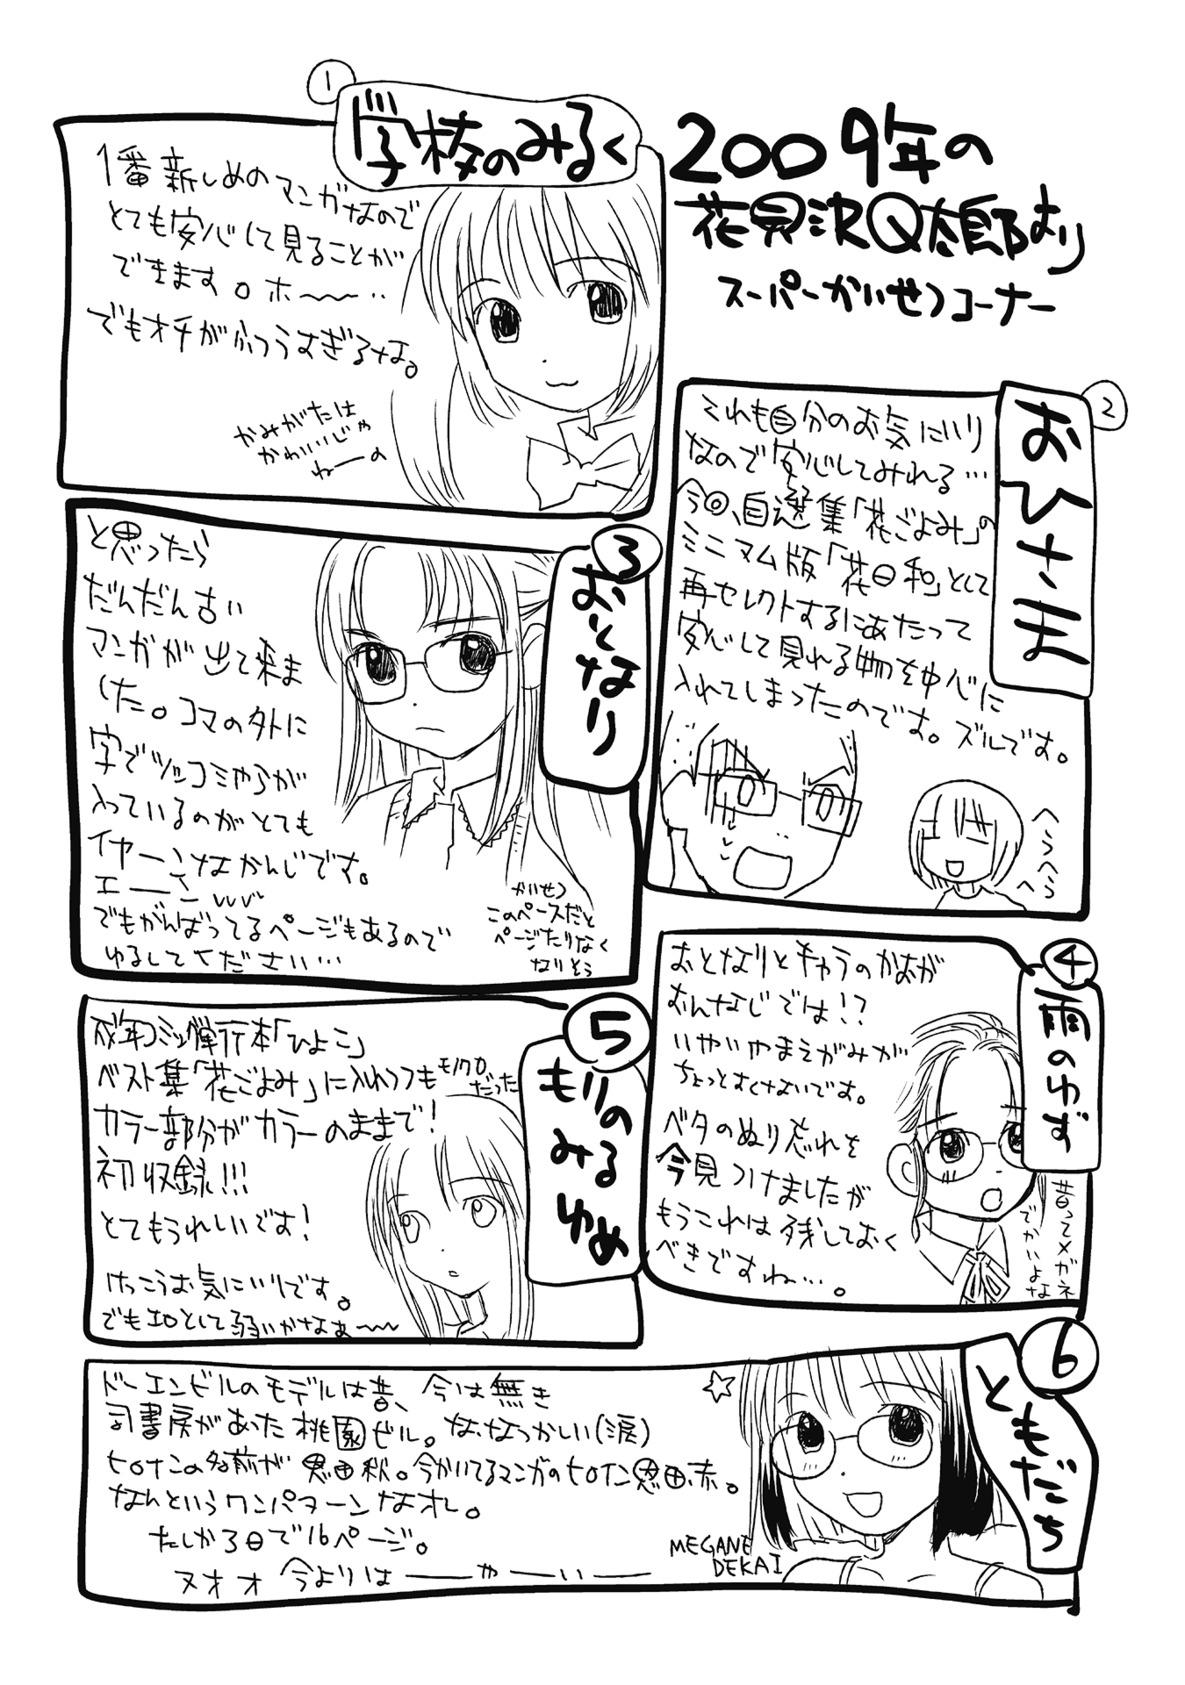 2009年の
花見沢Q太郎より
スーパーかいせつコーナー
1
学校のみるく
1番新しめのマンガなので
とても安心して見ることが
できます。ホ〜〜‥
でもオチがふつうすぎるな。
かみがたは
かわいいじゃ
ねーの
2
おひさま
それも自分のお気にいり
なので安心してみれる…
今回、自選集「花ごよみ」の
ミニマム版「花日和」として
再セレクトするにあたって
安心して見れる物を中心に
入れてしまったのです。ズルです。
へらへら
へ
3
おとなり
と思ったら
だんだん古い
マンガが出て来ま
した。コマの外に
字でツッコミやらが
入っているのがとても
イヤーンなかんじです。
エーンwww
でもがんばってるページもあるので
ゆるしてください…
かいせつ
このペースだと
ページたりなく
なりそう
4
雨のゆず
おとなりとキャラのかおが
おんなじでは!?
いやいやまえがみが
ちょっとすくないです。
ベタのぬり忘れを
今見つけましたが
もうこれは残しておく
べきですね…。
昔ってメガネ
でかいよな
5
もりの
みる
ゆめ
成年コミック単行本「ひよこ」
ベスト集「花ごよみ」に入れつつもモノクロ
だった
カラー部分がカラーのままで!
初収録!!!
とてもうれしいです!
けっこうお気にいりです。
でもエロとして弱いかなぁ〜〜
6
ともだち
ドーエンビルのモデルは昔、今は無き
司書房があった桃園ビル。な、なつかしい(涙)
ヒロインの名前が恩田秋。今かいてるマンガのヒロイン恩田赤。
なんというワンパターンなオレ。
たしか3日で16ページ。
ヌオオ 今よりは——や—い—
MEGANE
DEKAI